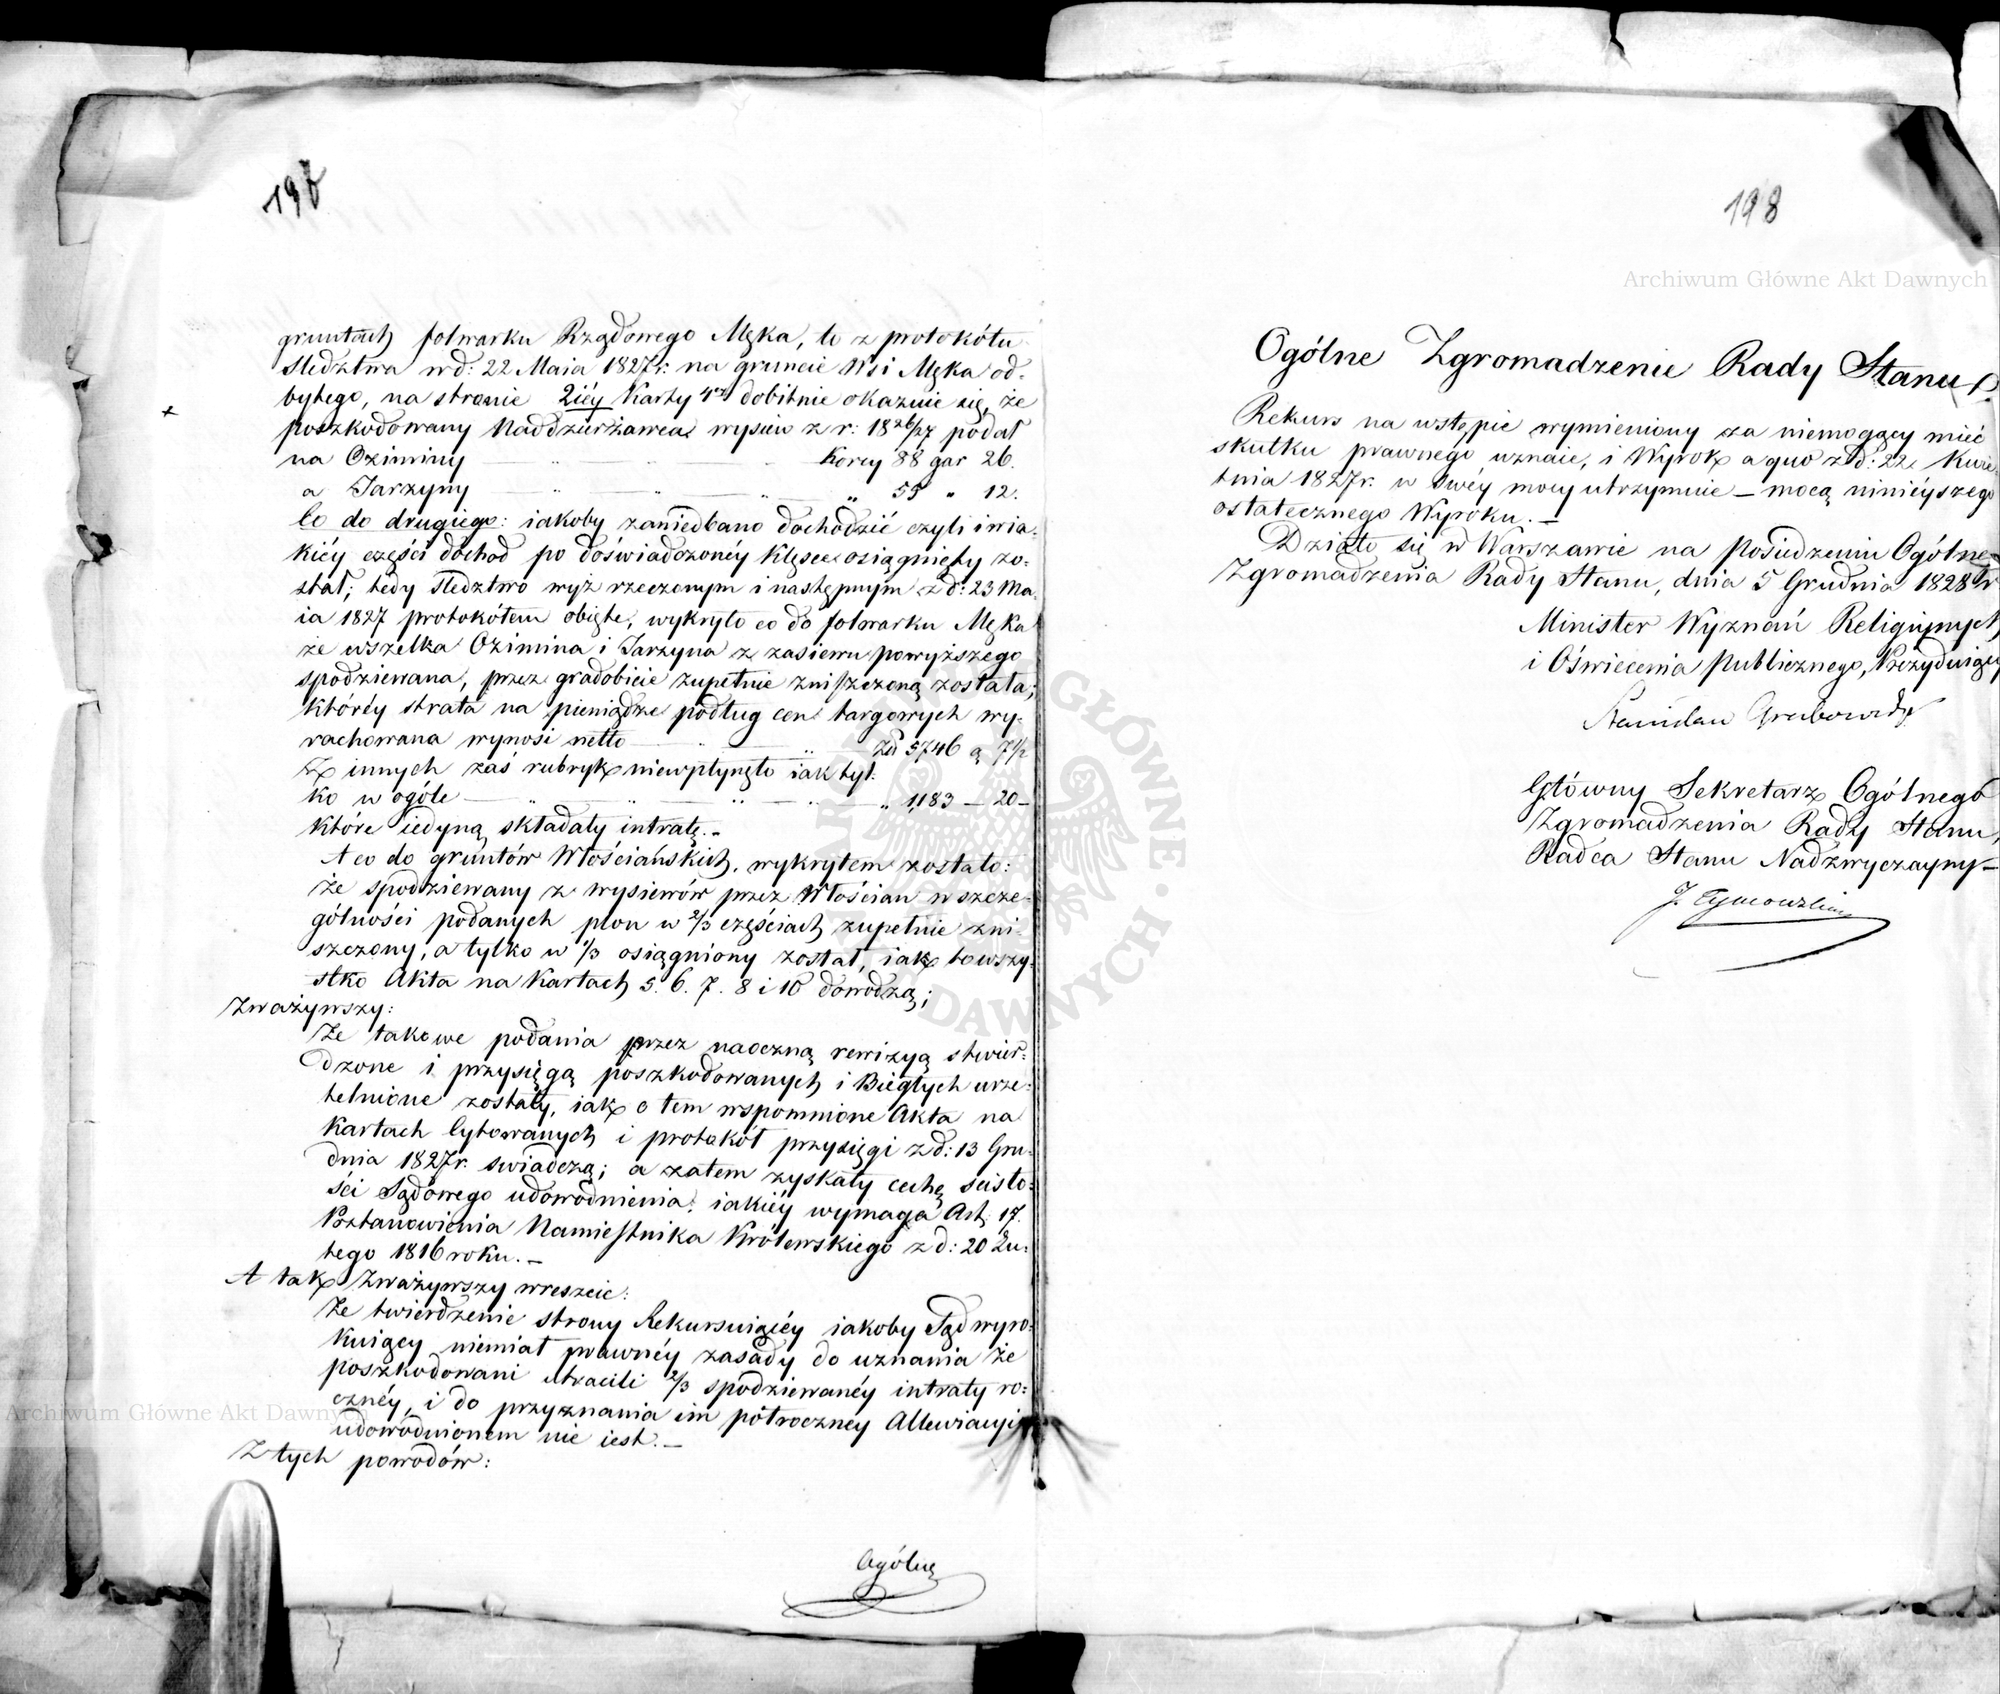 197
gruntach folwarku Rządowego Męka, to z protokółu
sledztwa w d: 22 Maia 1827 r: na gruncie Wsi Męka od-
bytego, na stronie 2iéy Karty 4éy dobitnie okazuie się, że
poszkodowany Naddzierżawca wysiew z r: 1826/27 podał
na Oziminy — " — " — Korcy 88 gar 26.
a Jarzyny — " — " — " — " 55 " 12.
Co do drugiego: iakoby zaniedbano dochodzić czyli i w ia-
kiéy części dochod po doświadczonéy klęsce osiągnięty zo-
stał; tedy sledztwo wyż rzeczonym i następnym z d: 23 Ma-
ia 1827 protokółem obięte, wykryło co do folwarku Męka
że wszelka Ozimina i Jarzyna z zasiewu powyższego
spodziewana, przez gradobicie zupełnie zniszczoną została;
któréy strata na pieniądze podług cen targowych wy-
rachowana wynosi netto — " — " — Złł 5746 g 7 1/2
Z innych zaś rubryk niewpłynęło iak tyl-
ko w ogóle — " — " — " — " — " 1,183 — 20 —
które iedyną składały intratę. —
A co do gruntów Włościańskich, wykrytem zostało:
że spodziewany z wysiewów przez Włościan w szcze-
gólności podanych plon w 2/3 częściach zupełnie zni-
szczony, a tylko w 1/3 osiągniony został, iak to wszy-
stko Akta na Kartach 5. 6. 7. 8 i 10 dowodzą;
Zważywszy:
Że takowe podania przez naoczną rewizyą stwier-
dzone i przysięgą poszkodowanych i Biegłych urze-
telnione zostały, iak o tem wspomnione Akta na
Kartach Cytowanych i protokół przysięgi z d: 13 Gru-
dnia 1827 r. swiadczą; a zatem zyskały cechę scisło-
ści Sądowego udowodnienia, iakiéy wymaga Art. 17.
Postanowienia Namiestnika Królewskiego z d: 20 Lu-
tego 1816 roku. —
A tak Zważywszy wreszcie:
Że twierdzenie strony Rekursuiącéy iakoby Sąd wyro-
kuiący niemiał prawnéy zasady do uznania że
poszkodowani utracili 2/3 spodziewanéy intraty ro-
cznéy, i do przyznania im półroczney Allewiacyi
udowodnionem nie iest. —
Z tych powodów:
Ogólne
198
Archiwum Główne Akt Dawnych
Ogólne Zgromadzenie Rady Stanu
Rekurs na wstępie wymieniony za niemogący mieć
skutku prawnego uznaie, i Wyrok a quo z d: 22 Kwie-
tnia 1827 r. w swéy mocy utrzymuie — mocą ninieyszego
ostatecznego Wyroku. —
Działo się w Warszawie na Posiedzeniu Ogólne-
Zgromadzenia Rady Stanu, dnia 5 Grudnia 1828 r
Minister Wyznań Religiynych
i Oświecenia Publicznego, Prezyduiący
Stanisław Grabowski
Główny Sekretarz Ogólnego
Zgromadzenia Rady Stanu,
Radca Stanu Nadzwyczayny —
J. Tymowski
Archiwum Główne Akt Dawnych